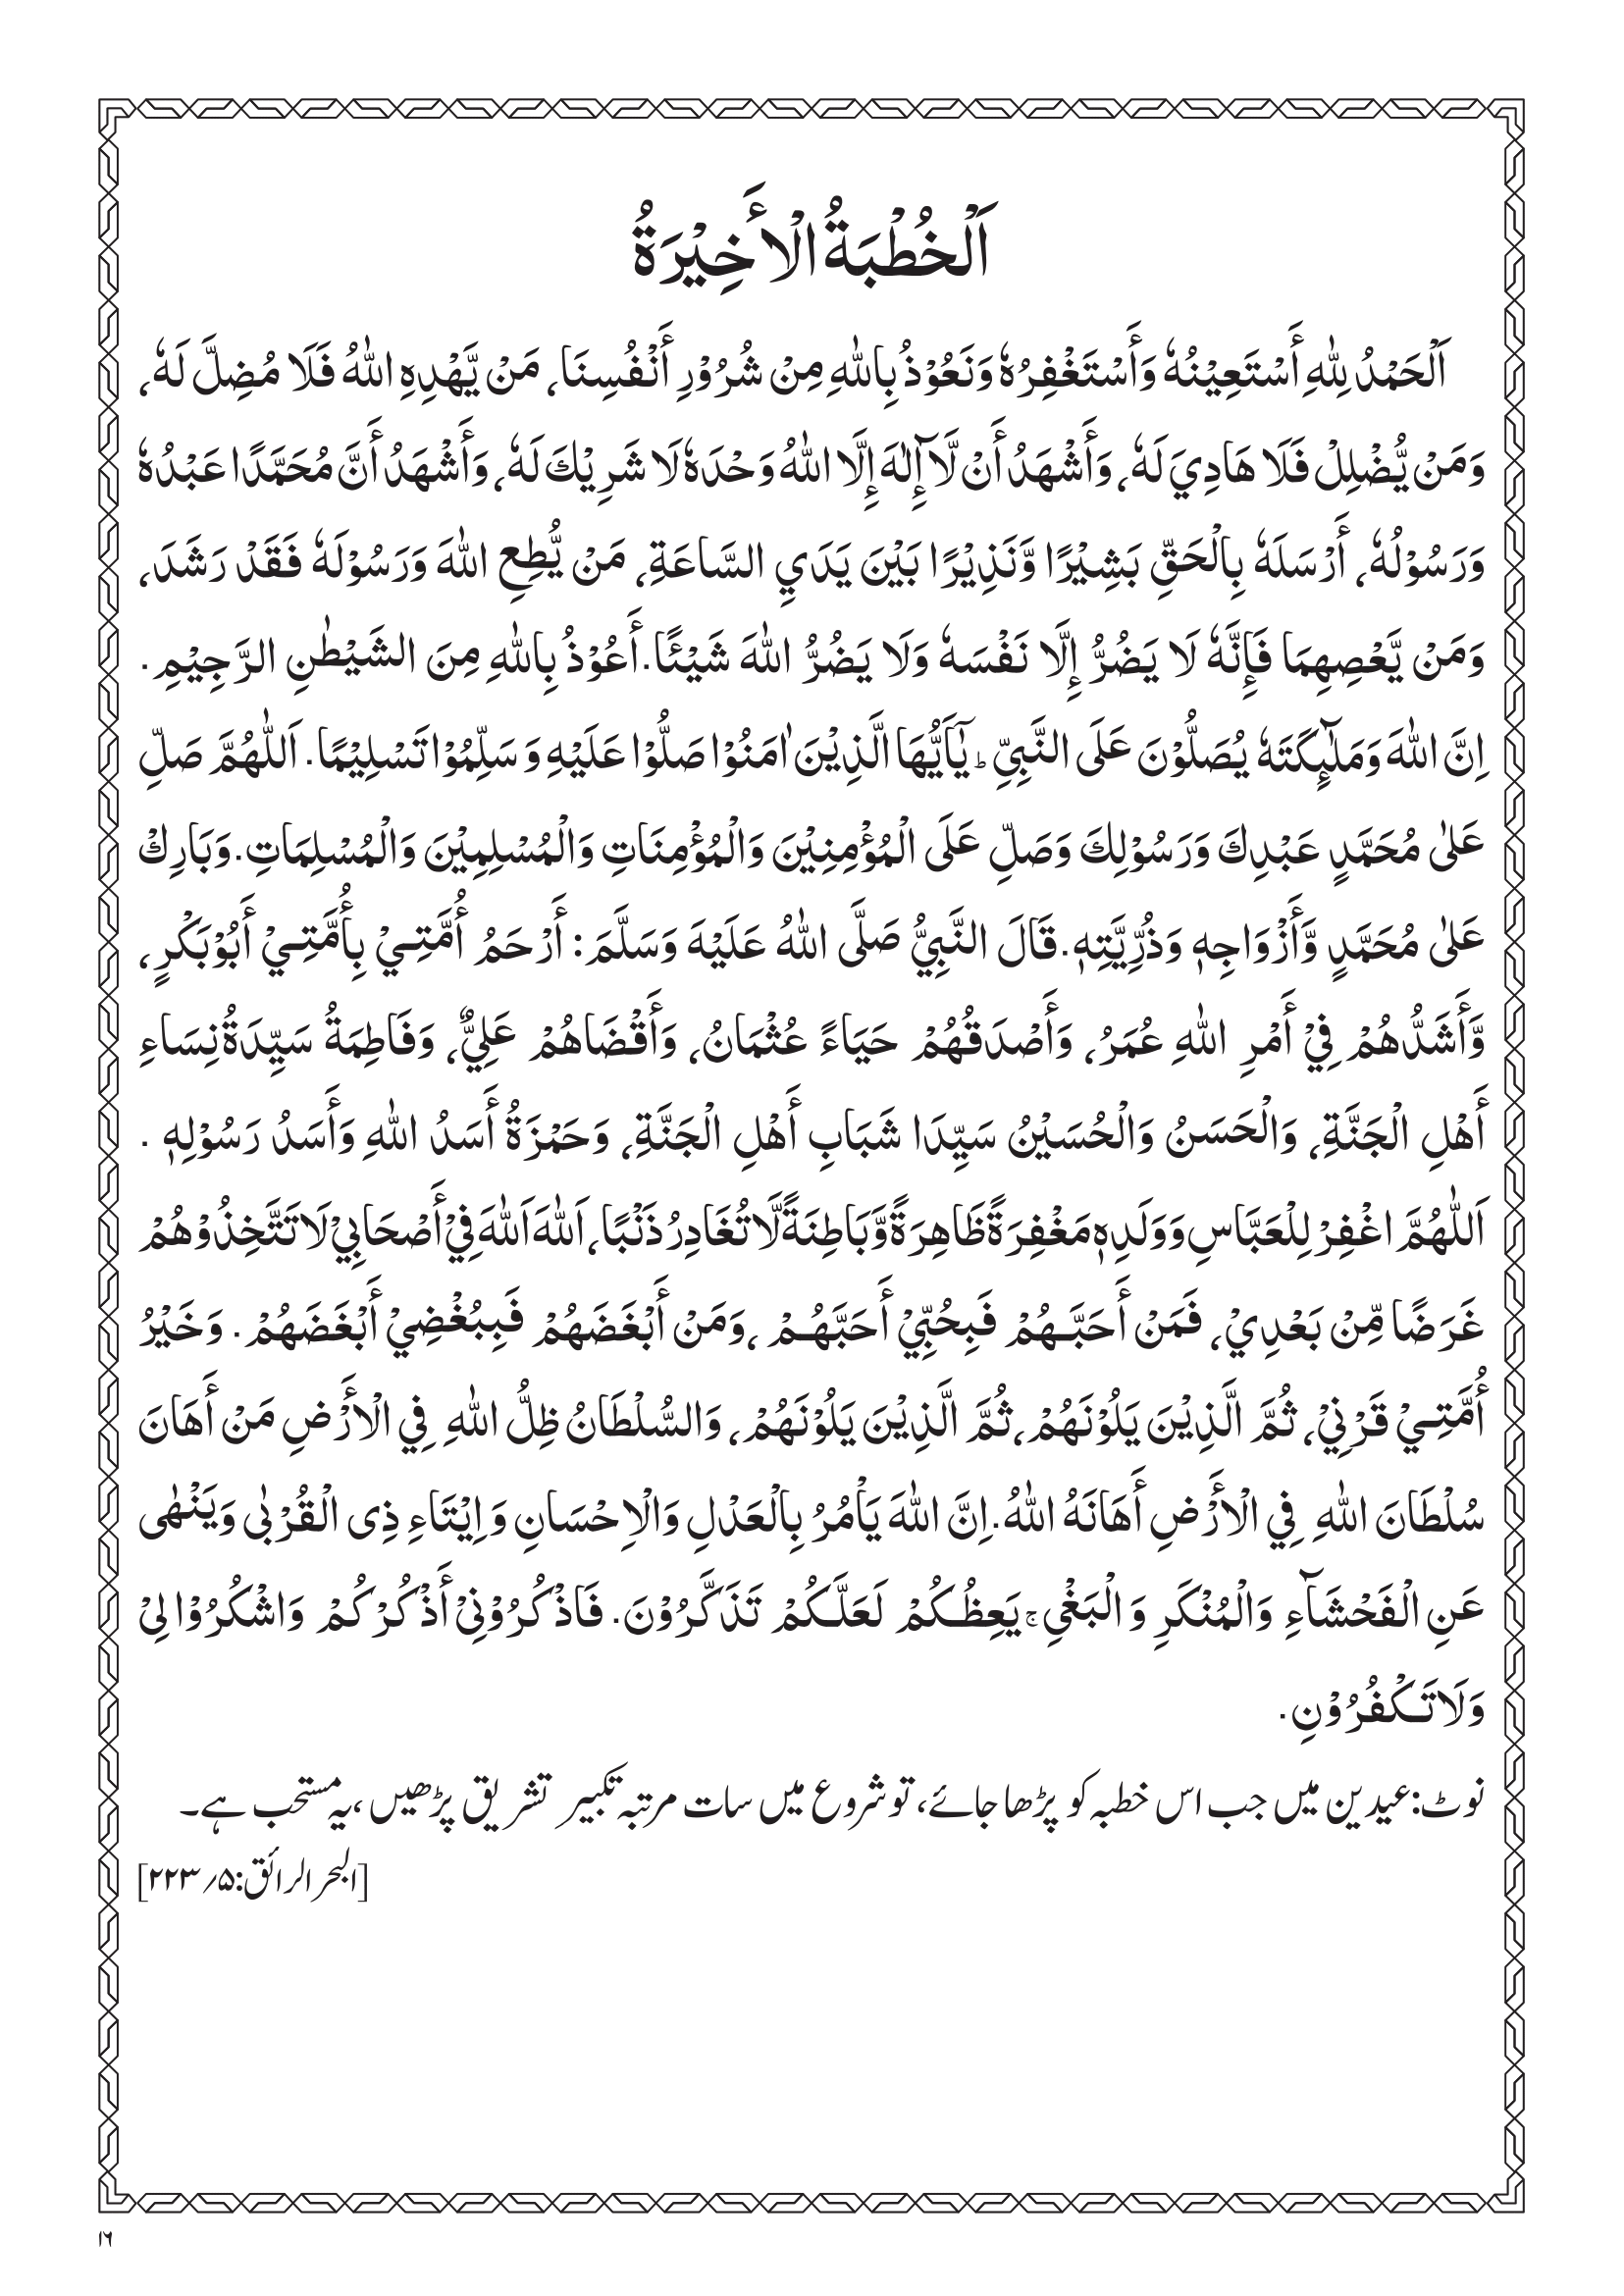 اَلْخُطْبَةُ الْأَخِيْرَةُ
اَلْحَمْدُ لِلّٰهِ أَسْتَعِيْنُهٗ وَأَسْتَغْفِرُهٗ وَنَعُوْذُ بِاللّٰهِ مِنْ شُرُوْرِ أَنْفُسِنَا، مَنْ يَّهْدِهِ اللّٰهُ فَلَا مُضِلَّ لَهٗ،
وَمَنْ يُّضْلِلْ فَلَا هَادِيَ لَهٗ، وَأَشْهَدُ أَنْ لَّآ إِلٰهَ إِلَّا اللّٰهُ وَحْدَهٗ لَا شَرِيْكَ لَهٗ، وَأَشْهَدُ أَنَّ مُحَمَّدًا عَبْدُهٗ
وَرَسُوْلُهٗ، أَرْسَلَهٗ بِالْحَقِّ بَشِيْرًا وَّنَذِيْرًا بَيْنَ يَدَيِ السَّاعَةِ، مَنْ يُّطِعِ اللّٰهَ وَرَسُوْلَهٗ فَقَدْ رَشَدَ،
وَمَنْ يَّعْصِهِمَا فَإِنَّهٗ لَا يَضُرُّ إِلَّا نَفْسَهٗ وَلَا يَضُرُّ اللّٰهَ شَيْئًا.أَعُوْذُ بِاللّٰهِ مِنَ الشَّيْطٰنِ الرَّجِيْمِ.
اِنَّ اللّٰهَ وَمَلٰٓئِكَتَهٗ يُصَلُّوْنَ عَلَى النَّبِيِّ ؕ يٰٓاَيُّهَا الَّذِيْنَ اٰمَنُوْا صَلُّوْا عَلَيْهِ وَ سَلِّمُوْا تَسْلِيْمًا. اَللّٰهُمَّ صَلِّ
عَلٰى مُحَمَّدٍ عَبْدِكَ وَرَسُوْلِكَ وَصَلِّ عَلَى الْمُؤْمِنِيْنَ وَالْمُؤْمِنَاتِ وَالْمُسْلِمِيْنَ وَالْمُسْلِمَاتِ.وَبَارِكْ
عَلٰى مُحَمَّدٍ وَّأَزْوَاجِهٖ وَذُرِّيَّتِهٖ.قَالَ النَّبِيُّ صَلَّى اللّٰهُ عَلَيْهَ وَسَلَّمَ: أَرْحَمُ أُمَّتِيْ بِأُمَّتِيْ أَبُوْبَكْرٍ،
وَّأَشَدُّهُمْ فِيْ أَمْرِ اللّٰهِ عُمَرُ، وَأَصْدَقُهُمْ حَيَاءً عُثْمَانُ، وَأَقْضَاهُمْ عَلِيٌّ، وَفَاطِمَةُ سَيِّدَةُ نِسَاءِ
أَهْلِ الْجَنَّةِ، وَالْحَسَنُ وَالْحُسَيْنُ سَيِّدَا شَبَابِ أَهْلِ الْجَنَّةِ، وَحَمْزَةُ أَسَدُ اللّٰهِ وَأَسَدُ رَسُوْلِهٖ .
اَللّٰهُمَّ اغْفِرْ لِلْعَبَّاسِ وَوَلَدِهٖ مَغْفِرَةً ظَاهِرَةً وَّبَاطِنَةً لَّا تُغَادِرُ ذَنْبًا، اَللّٰهَ اَللّٰهَ فِيْ أَصْحَابِيْ لَا تَتَّخِذُوْهُمْ
غَرَضًا مِّنْ بَعْدِيْ، فَمَنْ أَحَبَّهُمْ فَبِحُبِّيْ أَحَبَّهُمْ ،وَمَنْ أَبْغَضَهُمْ فَبِبُغْضِيْ أَبْغَضَهُمْ. وَخَيْرُ
أُمَّتِيْ قَرْنِيْ، ثُمَّ الَّذِيْنَ يَلُوْنَهُمْ، ثُمَّ الَّذِيْنَ يَلُوْنَهُمْ، وَالسُّلْطَانُ ظِلُّ اللّٰهِ فِي الْأَرْضِ مَنْ أَهَانَ
سُلْطَانَ اللّٰهِ فِي الْأَرْضِ أَهَانَهُ اللّٰهُ.اِنَّ اللّٰهَ يَاْمُرُ بِالْعَدْلِ وَالْاِحْسَانِ وَ اِيْتَاءِ ذِى الْقُرْبٰى وَيَنْهٰى
عَنِ الْفَحْشَآءِ وَالْمُنْكَرِ وَ الْبَغْيِ ۚ يَعِظُكُمْ لَعَلَّكُمْ تَذَكَّرُوْنَ. فَاذْكُرُوْنِيْ أَذْكُرْكُمْ وَاشْكُرُوْا لِيْ
وَلَا تَكْفُرُوْنِ.
نوٹ:عیدین میں جب اس خطبہ کو پڑھا جائے، تو شروع میں سات مرتبہ تکبیر تشریق پڑھیں، یہ مستحب ہے۔
[البحر الرائق:۵؍ ۲۲۳]
۱۶